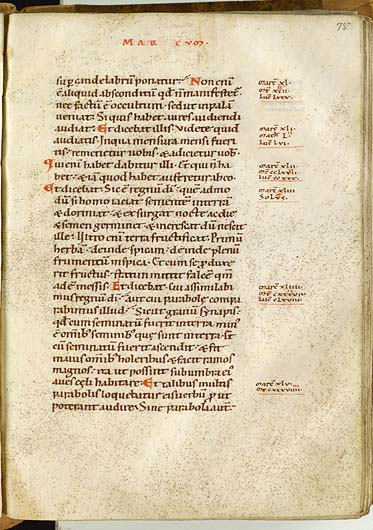 75
MAR CUM
sup candelabrum ponatur. Non enim
e aliquid absconditum qd n manifestetur
nec factu e occultum. sed ut in palam
veniat. Siquis habet aures audiendi
audiat. Et dicebat illis. Videte quid
audiatis. In qua mensura mensi fueri
tis. remetietur vobis. & adicietur vob.
Qui enim habet dabitur illi. Et qui n ha
bet. & ia quod habet auferetur ab eo.
Et dicebat. Sic e regnum di. que admo
dum si homo iaciat sementem in terra
& dormiat. & exsurgat nocte ac die
& semen germinet. & increscat du nescit
ille. Ultro eni terra fructificat. Primu
herba. deinde spicam. deinde plenu
frumentum in spica. Et cum se pduxe
rit fructus. statim mittit falce qm
ade messis. Et dicebat. Cui assimilabi
mus regnu di. aut cui parabole compa
rabimus illud. Sicut granu synapis.
qd cum seminatum fuerit in terra. minus
e omib seminib que sunt in terra. &
cu seminatum fuerit ascendit. & fit
maius omib holeribus. & facit ramos
magnos. ita ut possint sub umbra ei
aves celi habitare. Et talibus multis
parabolis loquebatur eis verbu. p ut
poterant audire. Sine parabola aut
marc XL.
mt XCII
luc LXXX.
marc XLI
math L
luc LVI.
marc XLII
luc CCXXX.
marc XLIII
Solus.
marc XLIIII
mt CXXXVII
marc XLV
mt CXXXVIIII